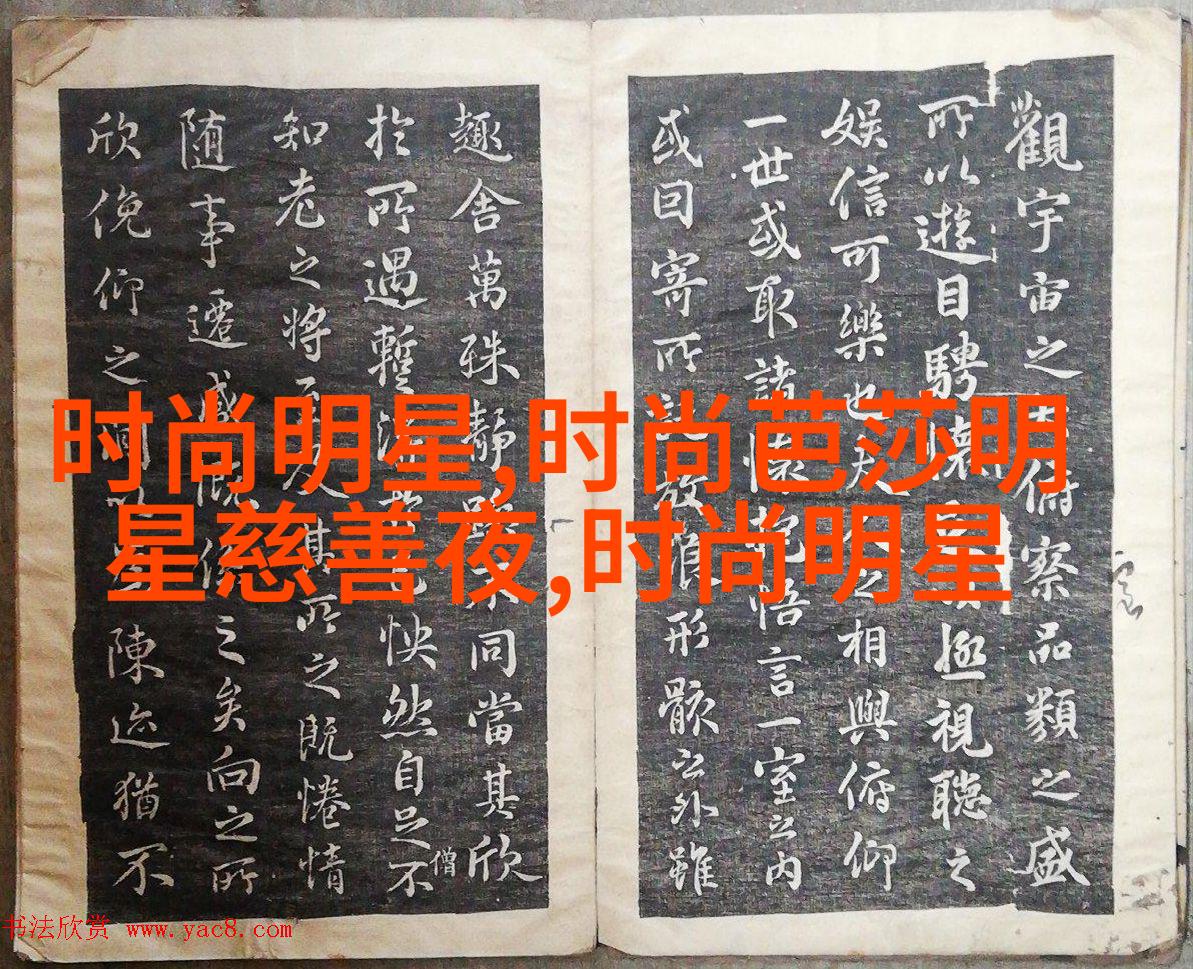 觀宇宙之大俯察品類之盛
所以遊目騁懷足以極視聽之
娱信可樂也夫人之相與俯仰
一世或取諸懷抱悟言一室之内
或因寄所託放浪形骸之外雖
趣舍萬殊静躁不同當其欣
於所遇暫得於己怏然自足不
知老之將至及其所之既惓情
随事遷感慨係之矣向之所
欣俛仰之間以為陳迹猶不
僧
时尚明星,时尚芭莎明
星慈善夜,时尚明星
书法欣赏 www.yac8.com